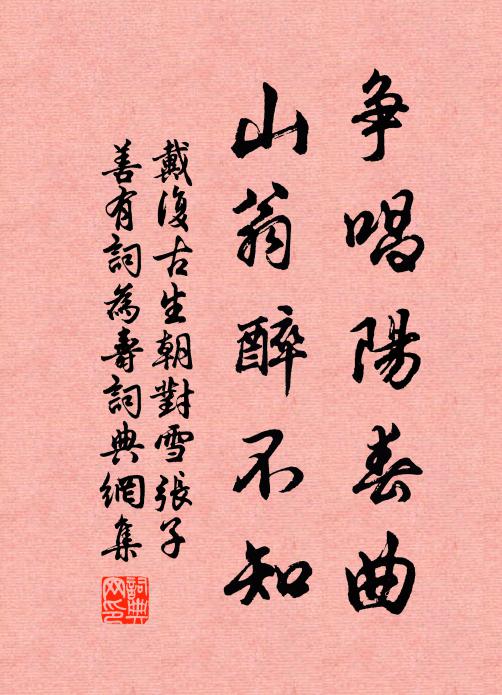 争唱陽春曲
山翁醉不知
戴復古生朝對雪張子
善有詞為壽詞典網集
詞典
网印